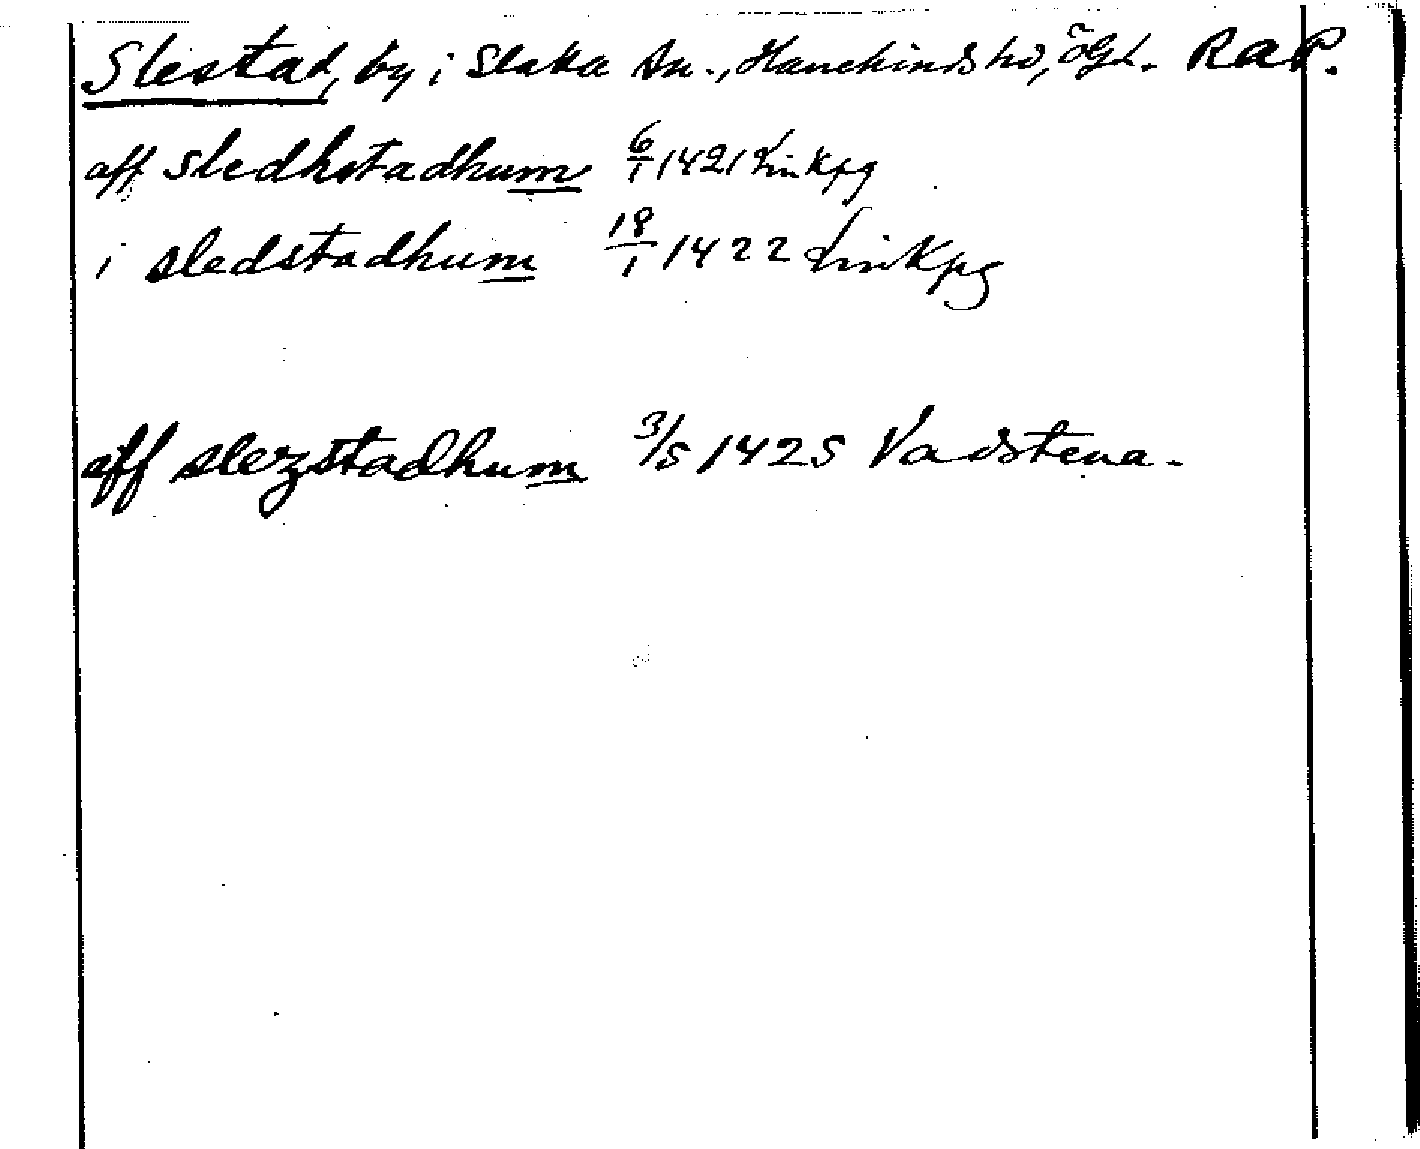 Slestad, by i Slaka sn., Hanekinds hd, Ögl. RAP.
aff sledhstadhum 6/1 1421 Linkpg
i sledstadhum 18/1 1422 Linkpg
aff slezstadhum 3/5 1425 Vadstena.